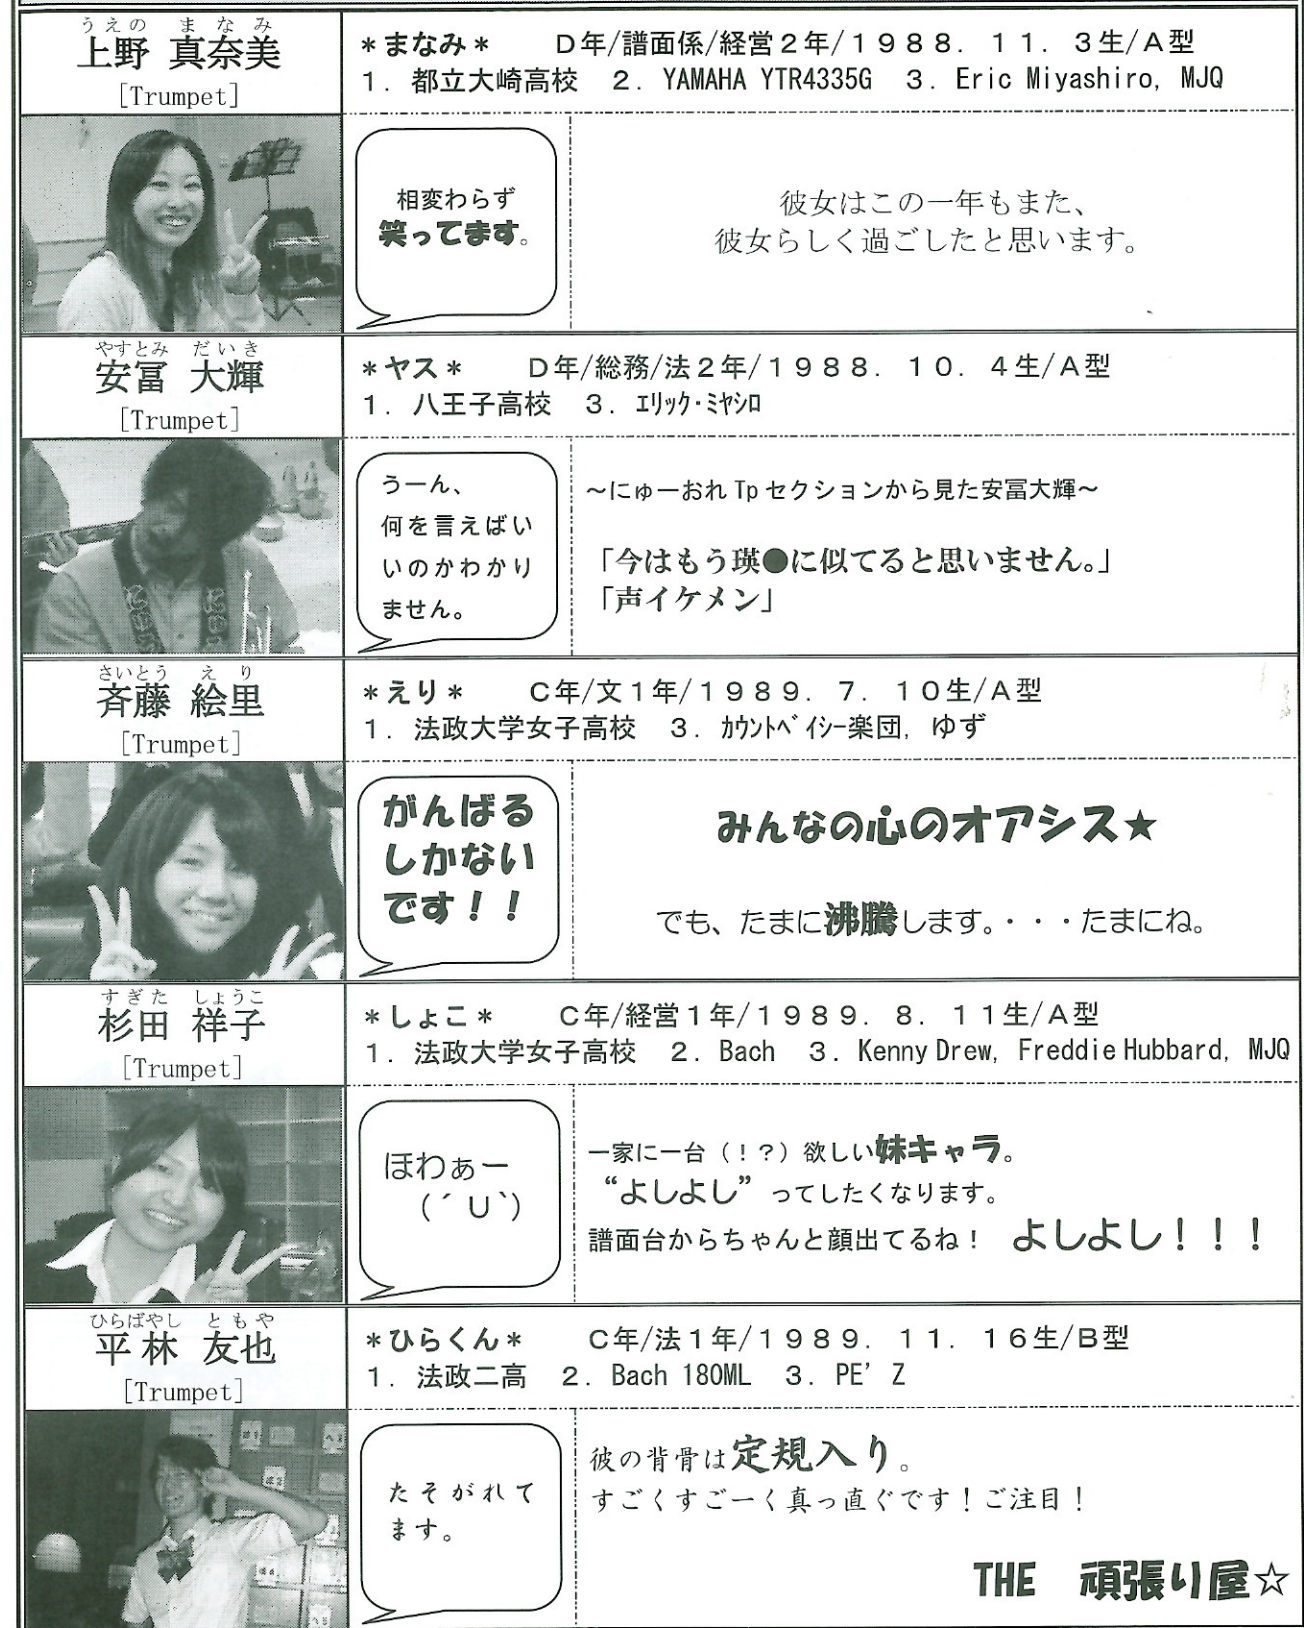 うえの まなみ
上野 真奈美
[Trumpet]
＊まなみ＊ Ｄ年/譜面係/経営２年/１９８８．１１．３生/Ａ型
１．都立大崎高校 ２．YAMAHA YTR4335G ３．Eric Miyashiro, MJQ
相変わらず
笑ってます。
彼女はこの一年もまた、
彼女らしく過ごしたと思います。
やすとみ だいき
安冨 大輝
[Trumpet]
＊ヤス＊ Ｄ年/総務/法２年/１９８８．１０．４生/Ａ型
１．八王子高校 ３．ｴﾘｯｸ･ﾐﾔｼﾛ
うーん、
何を言えばい
いのかわかり
ません。
～にゅーおれ Tp セクションから見た安冨大輝～
「今はもう瑛●に似てると思いません。」
「声イケメン」
さいとう えり
斉藤 絵里
[Trumpet]
＊えり＊ Ｃ年/文１年/１９８９．７．１０生/Ａ型
１．法政大学女子高校 ３．ｶｳﾝﾄﾍﾞｲｼｰ楽団, ゆず
がんばる
しかない
です！！
みんなの心のオアシス★
でも、たまに沸騰します。・・・たまにね。
すぎた しょうこ
杉田 祥子
[Trumpet]
＊しょこ＊ Ｃ年/経営１年/１９８９．８．１１生/Ａ型
１．法政大学女子高校 ２．Bach ３．Kenny Drew, Freddie Hubbard, MJQ
ほわぁー
（´Ｕ`）
一家に一台（！？）欲しい妹キャラ。
“よしよし”ってしたくなります。
譜面台からちゃんと顔出てるね！ よしよし！！！
ひらばやし ともや
平林 友也
[Trumpet]
＊ひらくん＊ Ｃ年/法１年/１９８９．１１．１６生/Ｂ型
１．法政二高 ２．Bach 180ML ３．PE’Z
たそがれて
ます。
彼の背骨は定規入り。
すごくすごーく真っ直ぐです！ご注目！
THE 頑張り屋☆